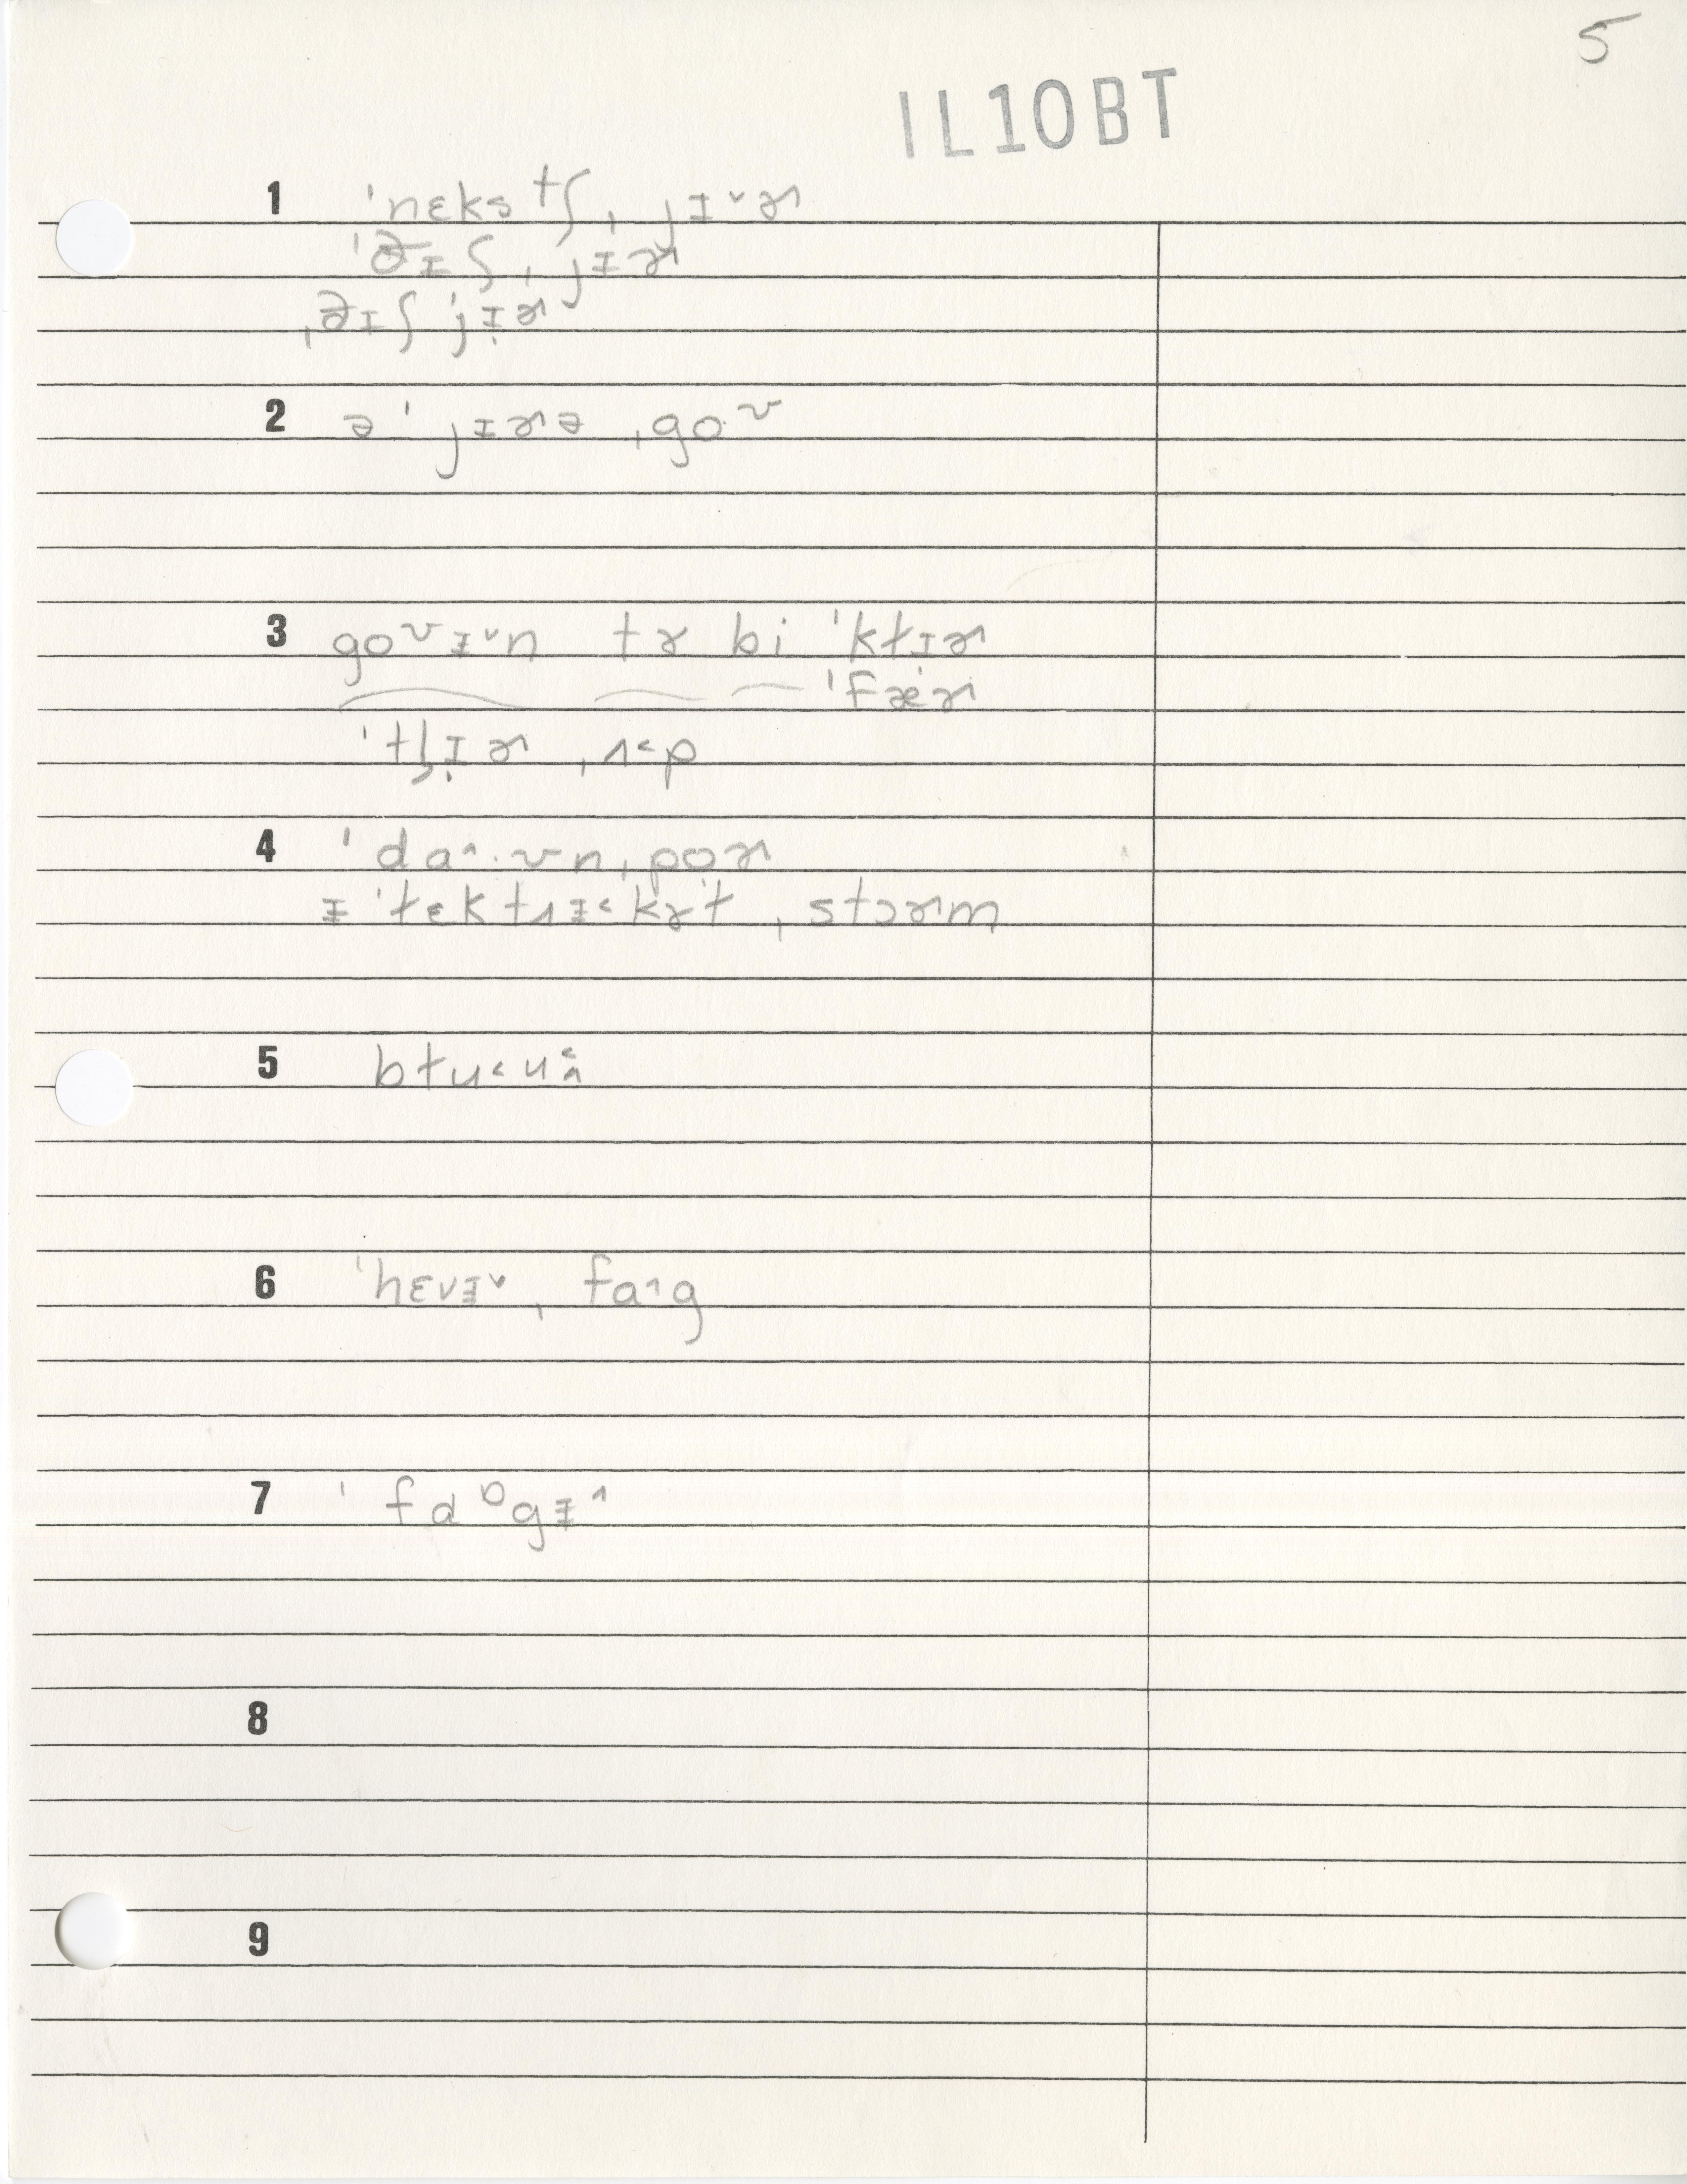 5
IL10BT
1 ˈnɛkstʃˌjɪ˅ɚ
ˈðɪʃˌjɪɚ
ˌðɪʃˈjɪɚ
2 əˈjɪɚəˌgoʊ
3 goʊɪ˅n tɤ bi ˈkɫɪɚ
ˈfæɚ
ˈtʃɪɚˌʌp
4 ˈda^ʊnˌpoɚ
ɪˈɫɛktɹɪ˂kɤɫˌstɔɚm
5 bɫu˂u
6 ˈhɛvɪ˅ˌfag
7 ˈfɑɒgɪ^
8
9